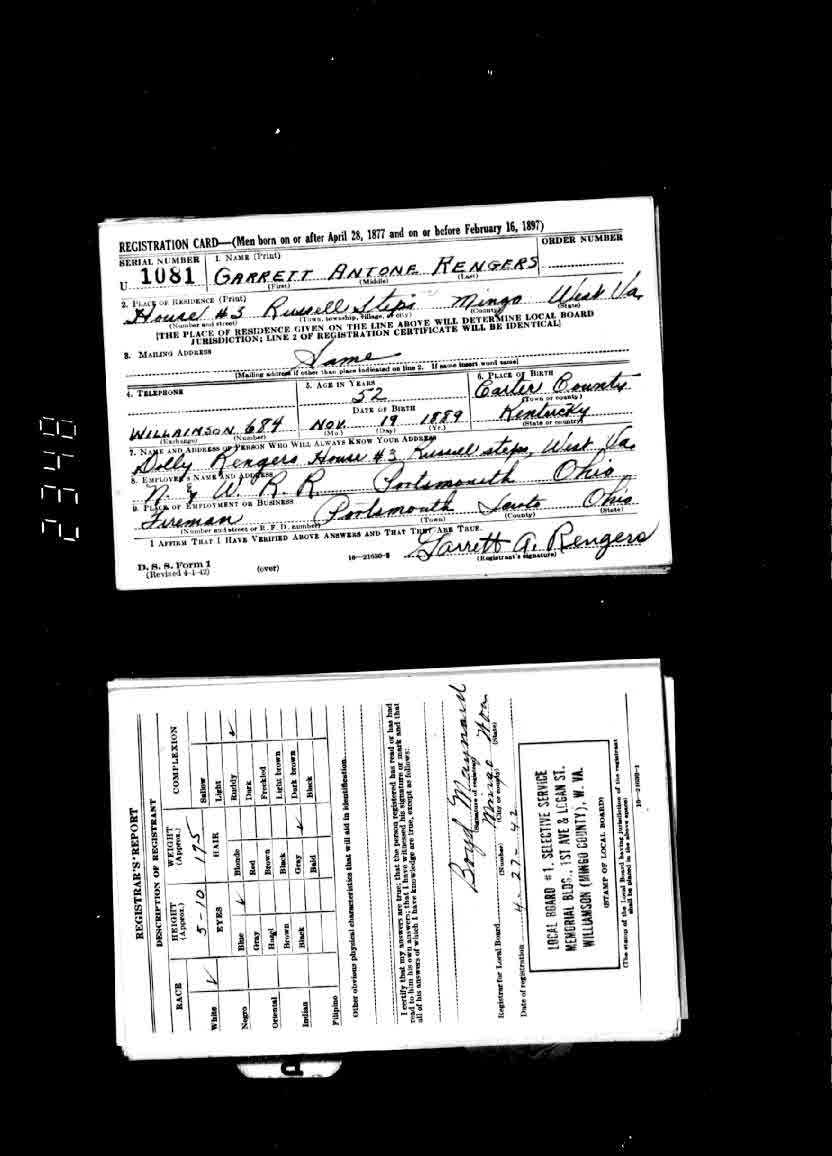 REGISTRATION CARD—(Men born on or after April 28, 1877 and on or before February 16, 1897)
SERIAL NUMBER
1. NAME (Print)
ORDER NUMBER
U 1081
GARRETT ANTONE RENGERS
(First) (Middle) (Last)
2. PLACE OF RESIDENCE (Print)
House #3 Russell Steps Mingo West Va.
(Number and street) (Town, township, village, or city) (County) (State)
[THE PLACE OF RESIDENCE GIVEN ON THE LINE ABOVE WILL DETERMINE LOCAL BOARD
JURISDICTION; LINE 2 OF REGISTRATION CERTIFICATE WILL BE IDENTICAL]
3. MAILING ADDRESS
Same
[Mailing address if other than place indicated on line 2. If same insert word same]
4. TELEPHONE
5. AGE IN YEARS
6. PLACE OF BIRTH
52
Carter County
(Town or county)
DATE OF BIRTH
WILLAIMSON 684
NOV. 19 1889
Kentucky
(Exchange) (Number)
(Mo.) (Day) (Yr.)
(State or country)
7. NAME AND ADDRESS OF PERSON WHO WILL ALWAYS KNOW YOUR ADDRESS
Dolly Rengers House #3 Russell steps, West Va.
8. EMPLOYER'S NAME AND ADDRESS
N. & W. R. R. Portsmouth Ohio
9. PLACE OF EMPLOYMENT OR BUSINESS
Fireman Portsmouth Ohio
(Number and street or R. F. D. number) (Town) (County) (State)
I AFFIRM THAT I HAVE VERIFIED ABOVE ANSWERS AND THAT THEY ARE TRUE.
Garrett A. Rengers
D. S. S. Form 1
(Revised 4-1-42)
(over)
16—21630-2
(Registrant's signature)
2348
REGISTRAR'S REPORT
DESCRIPTION OF REGISTRANT
RACE
HEIGHT
(Approx.)
WEIGHT
(Approx.)
COMPLEXION
5-10
175
White ✓
EYES
HAIR
Sallow
Light
Negro
Blue ✓
Blonde
Ruddy ✓
Gray
Red
Dark
Oriental
Hazel
Brown
Freckled
Brown
Black
Light brown
Indian
Black
Gray ✓
Dark brown
Bald
Black
Filipino
Other obvious physical characteristics that will aid in identification
I certify that my answers are true; that the person registered has read or has had
read to him his own answers; that I have witnessed his signature or mark and that
all of his answers of which I have knowledge are true, except as follows:
Boyd Maynard
(Signature of registrar)
Registrar for Local Board
Mingo
(Number) (City or county) (State)
Date of registration 4-27-42
LOCAL BOARD #1, SELECTIVE SERVICE
MEMORIAL BLDG., 1ST AVE & LOGAN ST.
WILLIAMSON (MINGO COUNTY), W. VA.
(STAMP OF LOCAL BOARD)
(The stamp of the Local Board having jurisdiction of the registrant
shall be placed in the above space)
16—21630-1